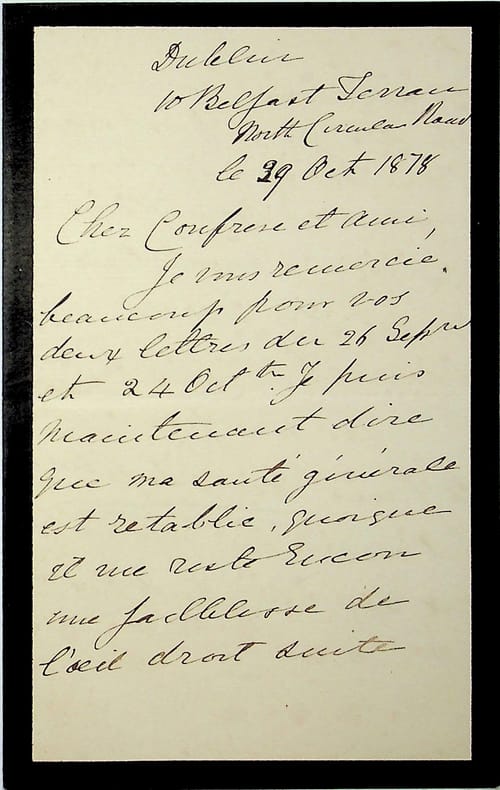 Dublin
10 Belfast Terrace
North Circular Road
le 29 Oct 1878
Cher Confrere et ami,
Je vous remercie
beaucoup pour vos
deux lettres du 26 Sepre
et 24 Octth. Je puis
maintenant dire
que ma santé générale
est retablie, quoique
il me reste encore
une faiblesse de
l'œil droit suite